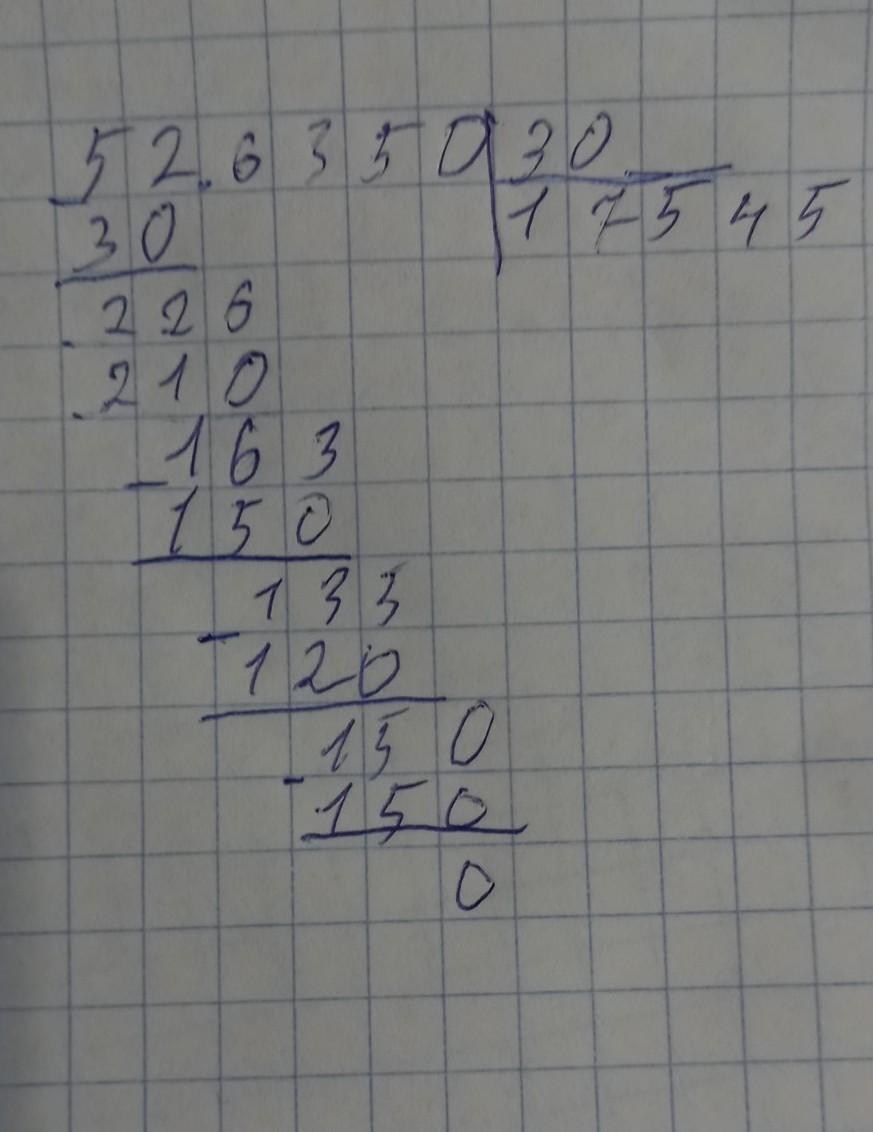 52.6350 30
30 17545
226
210
-163
150
-133
120
-150
150
0